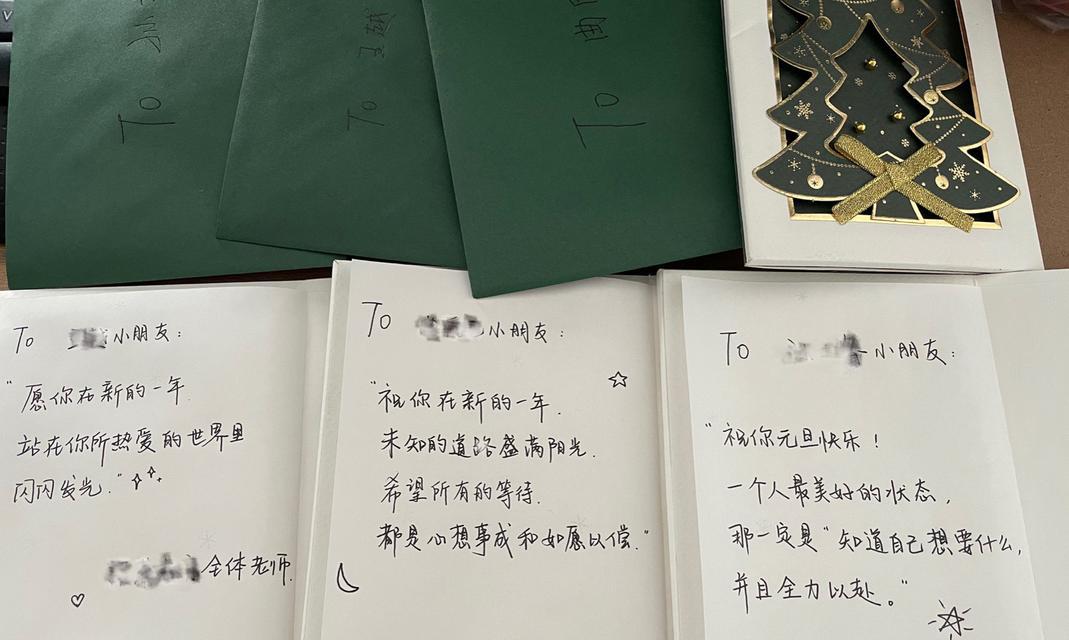 To
To 王越
To
To 小朋友：
"愿你在新的一年
站在你所热爱的世界里
闪闪发光."
全体老师.
To 小朋友：
"祝你在新的一年.
未知的道路盛满阳光.
希望所有的等待.
都是心想事成和如愿以偿."
To 小朋友：
"祝你元旦快乐！
一个人最美好的状态，
那一定是"知道自己想要什么，
并且全力以赴。"